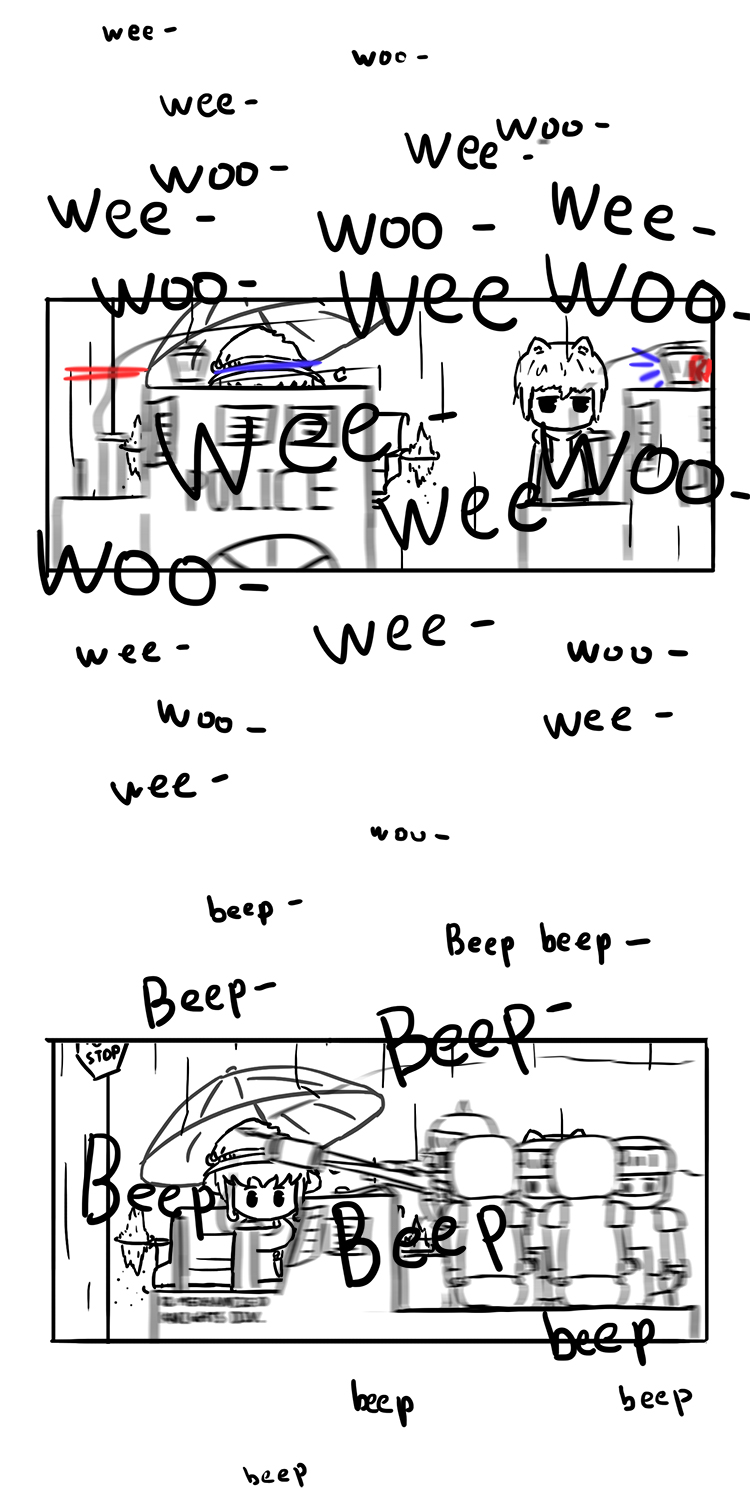 wee -
woo -
wee -
woo -
wee -
woo -
wee -
woo -
wee -
woo -
wee
woo -
wee -
POLICE
woo -
wee
woo -
wee -
wee -
woo -
woo -
wee -
wee -
woo -
beep -
Beep beep -
Beep -
Beep -
STOP
Beep
Beep
beep
beep
beep
beep